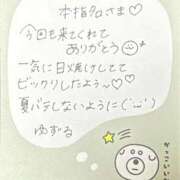 本指名さま♡
今回も来てくれて
ありがとう
一気に日焼けしてて
ビックリしたよう♡♡
夏バテしないように(´ω`)
ゆずる
かっこいい